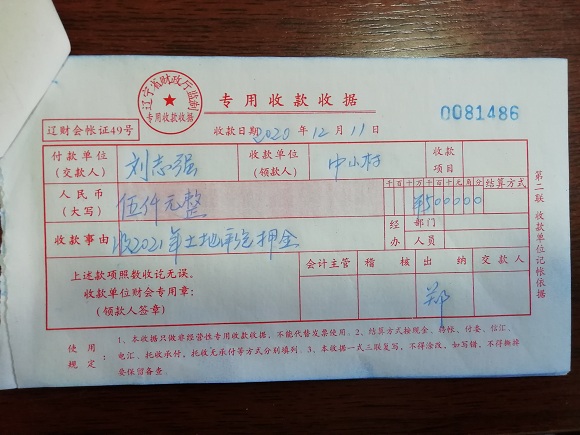 辽宁省财政厅监制
专用收款收据
专用收款收据
0081486
辽财会帐证49号
收款日期2020年12月11日
付款单位
(交款人)
刘志强
收款单位
(领款人)
中山村
收款
项目
人民币
(大写)
伍仟元整
千百十万千百十元角分
结算方式
¥500000
收款事由
收2021年土地承包押金
经办
部门
人员
上述款项照数收讫无误。
收款单位财会专用章:
(领款人签章)
会计主管
稽核
出纳
交款人
郑
第二联 收款单位记帐依据
使用规定:
1、本收据只做非经营性专用收款收据,不能代替发票使用。2、结算方式按现金、转帐、付委、信汇、
电汇、托收承付,托收无承付等方式分别填列。3、本收据一式三联复写,不得涂改,如写错,不得撕掉
要保留备查。